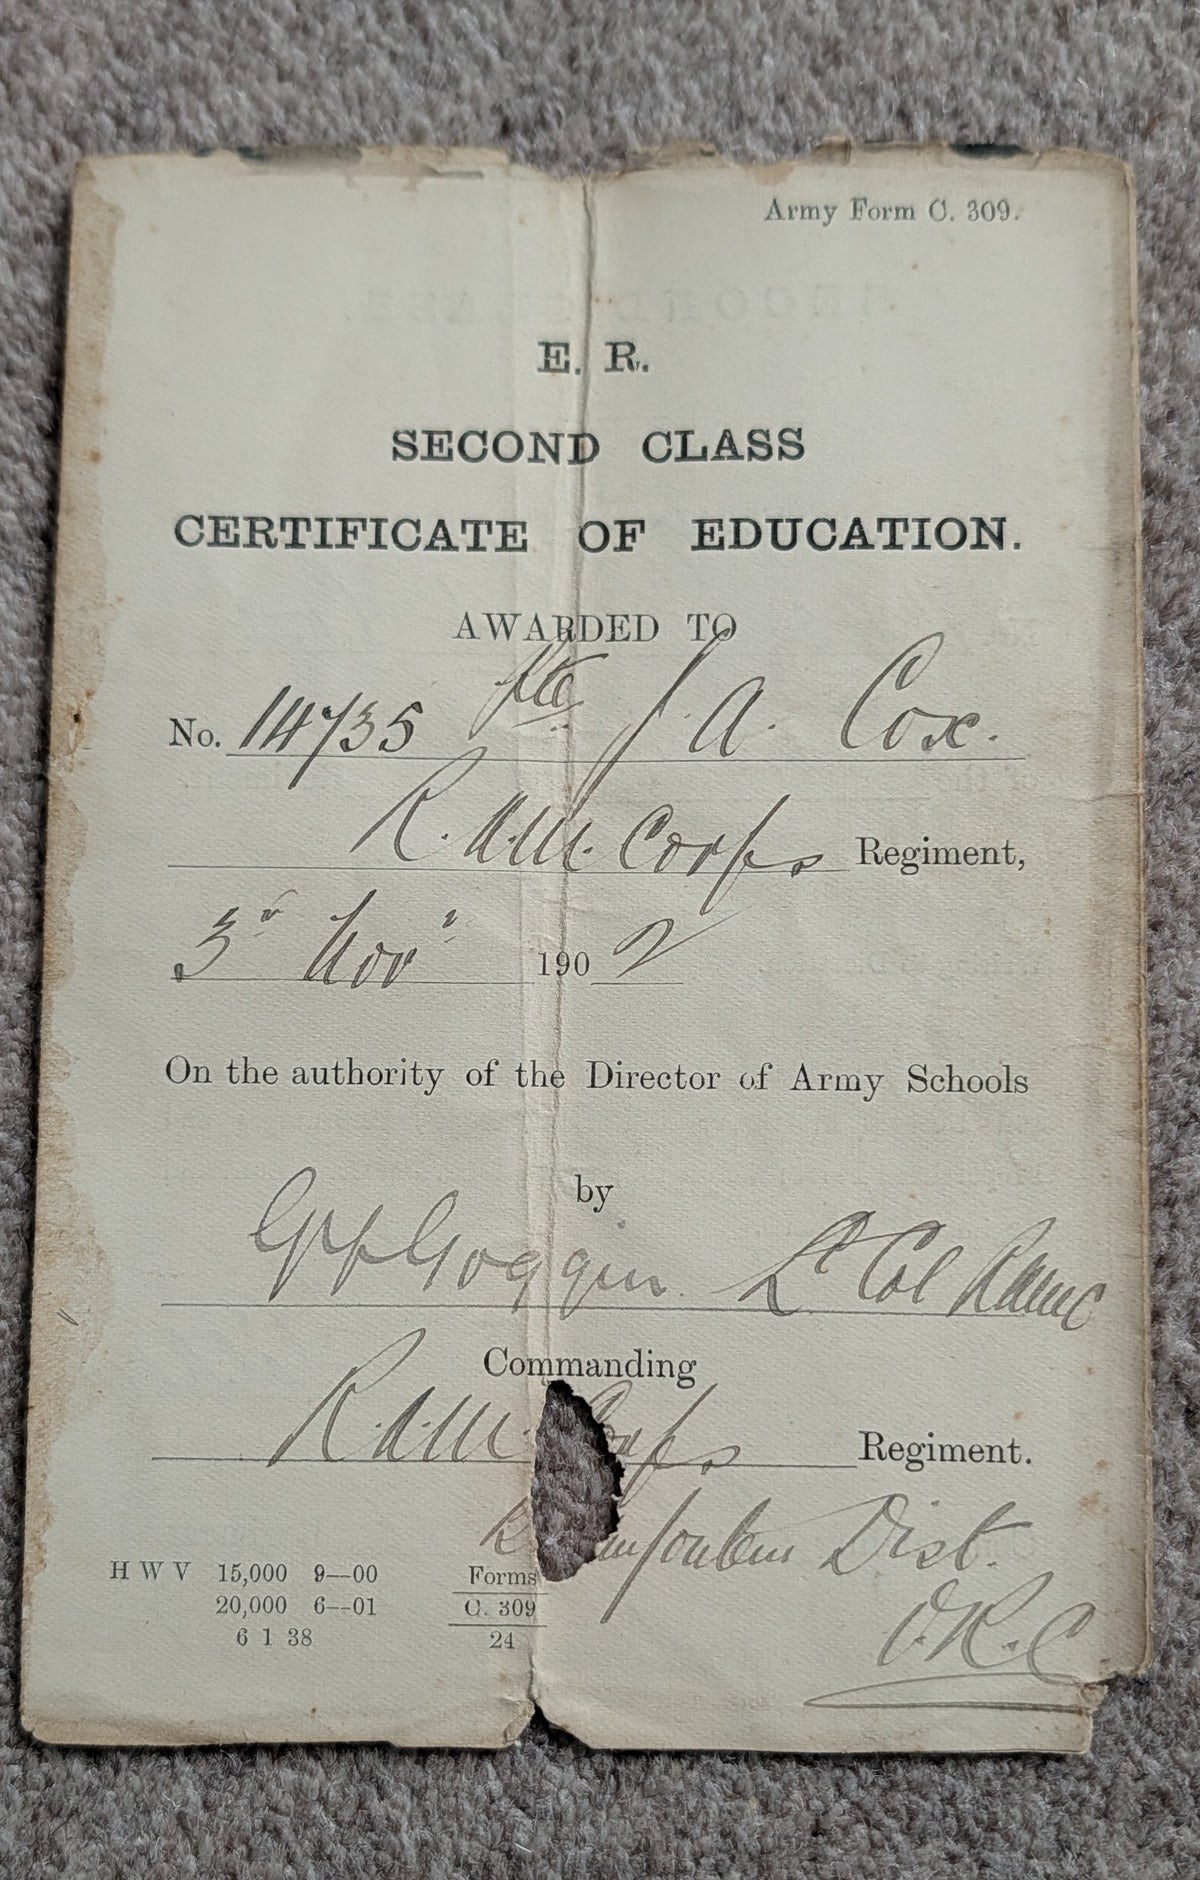 Army Form C. 309.
E. R.
SECOND CLASS
CERTIFICATE OF EDUCATION.
AWARDED TO
No. 14735 Pte J. A. Cox.
R. A.M. Corps Regiment,
3rd Novr 1902
On the authority of the Director of Army Schools
by
Goggin Lt Col RAMC
Commanding
R.A.M. Corps Regiment.
Dist.
O.R.C
H W V 15,000 9—00 Forms
20,000 6—01 C. 309
6 1 38 24